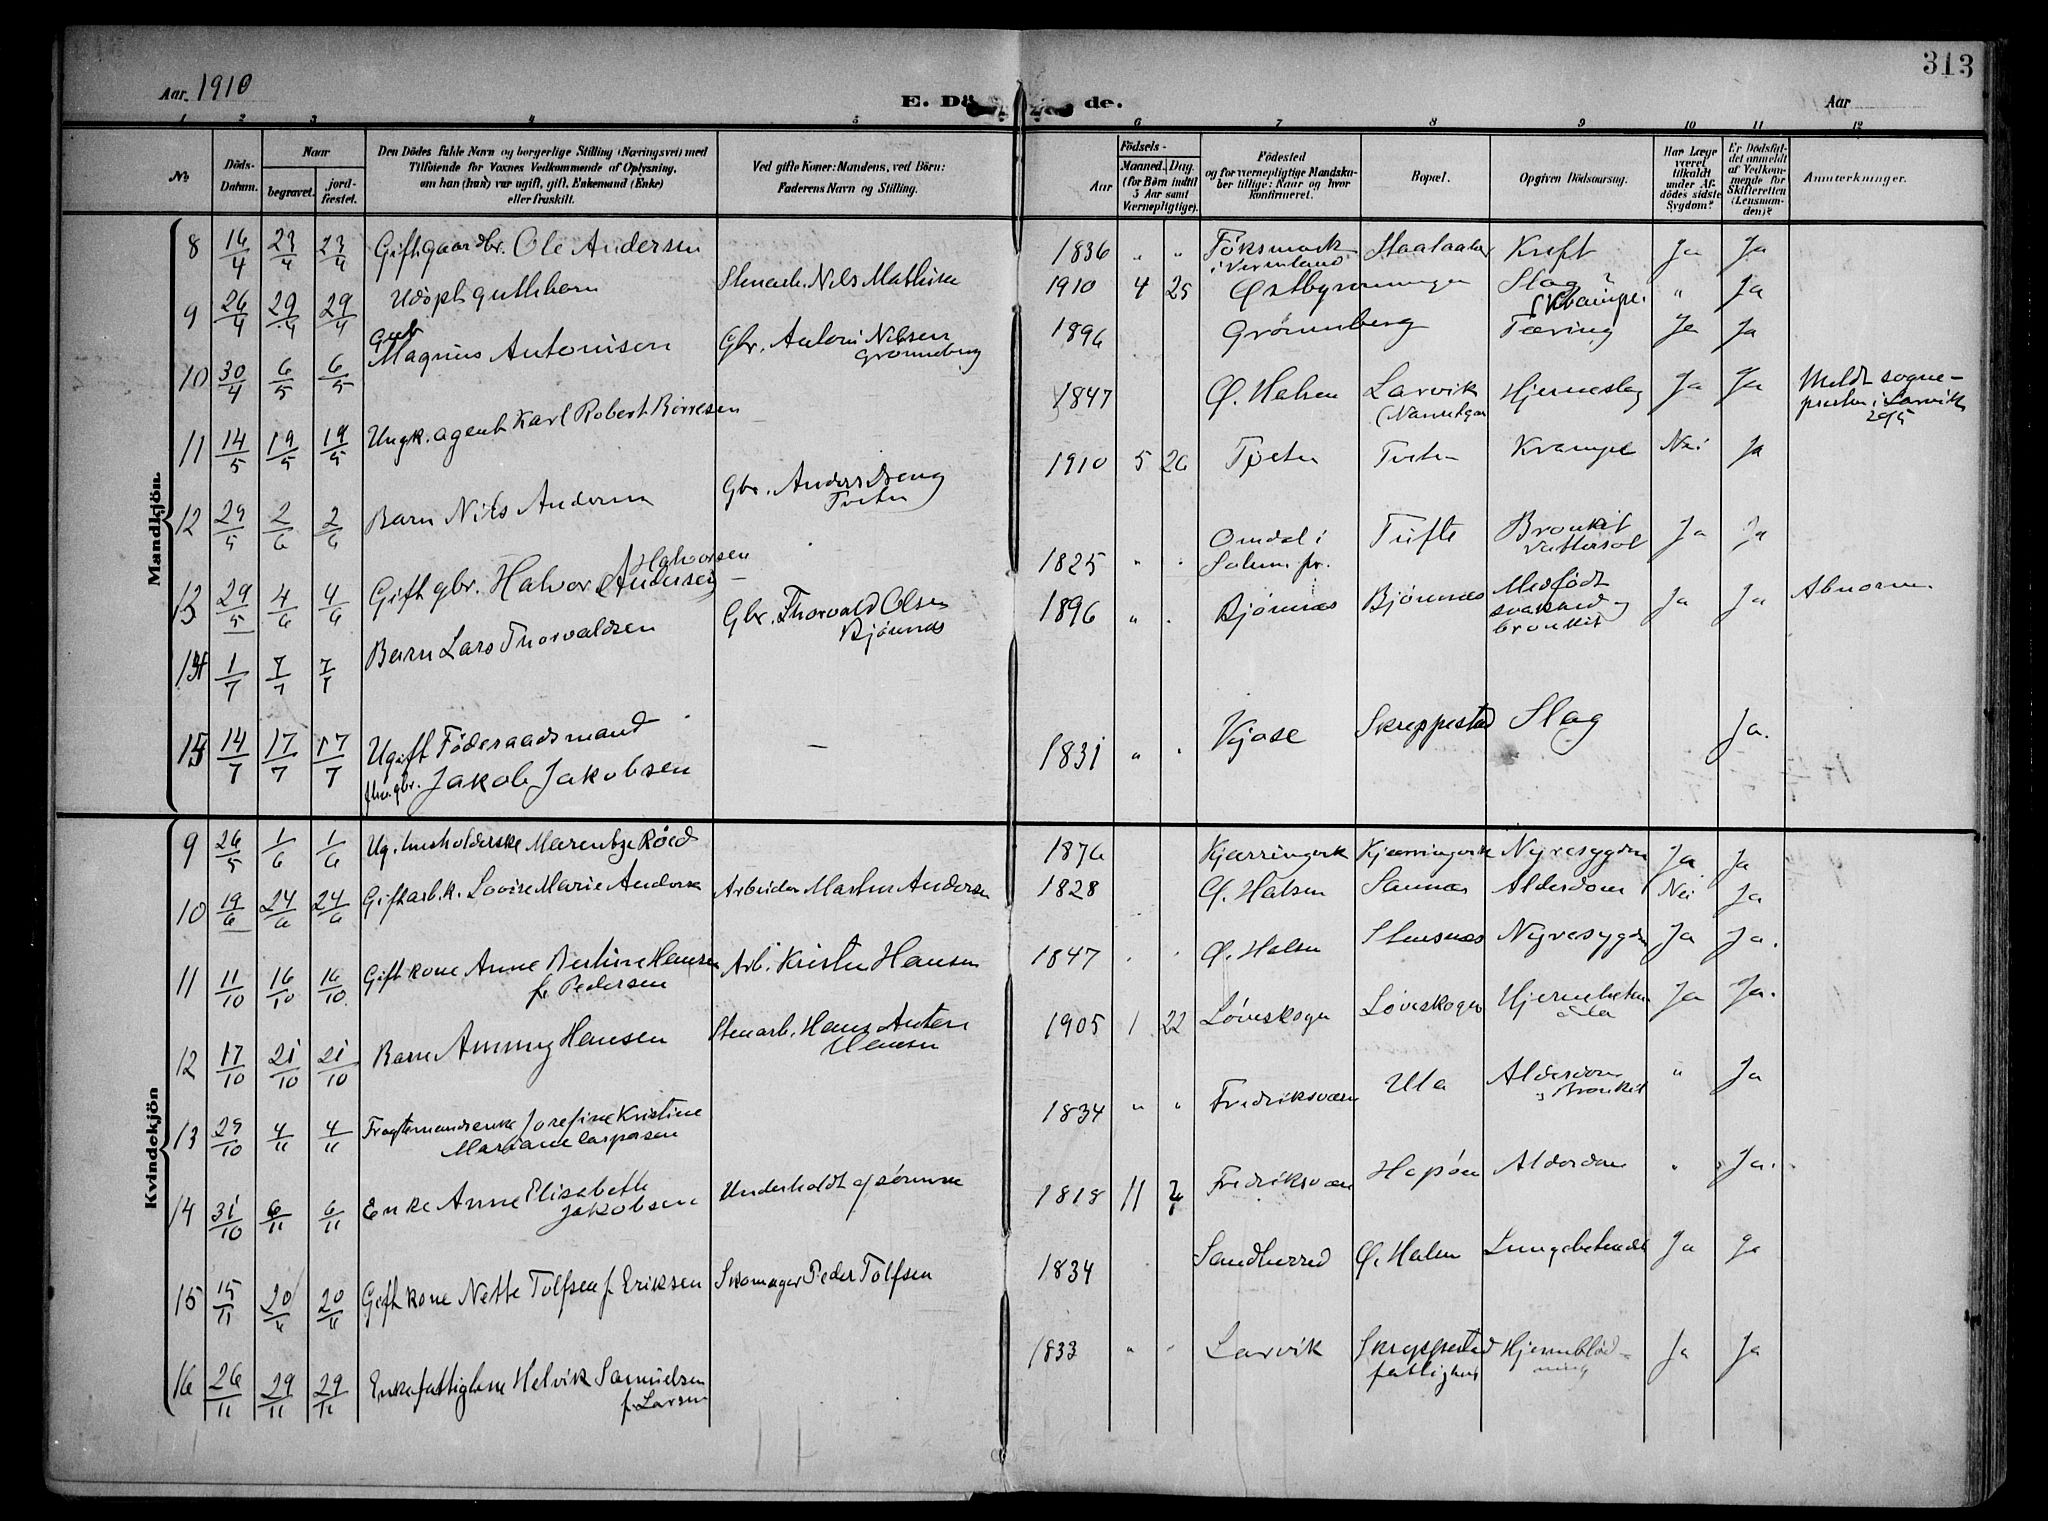 313
Aar 1910
E. Dö de.
Aar
1 2 3 4 5 6 7 8 9 10 11 12
No
Döds-Datum.
Naar
begravet.
jord-fæstet.
Den Dödes fulde Navn og borgerlige Stilling (Næringsvei) med
Tilföiende for Voxnes Vedkommende af Oplysning,
om han (hun) var ugift, gift, Enkemand (Enke)
eller fraskilt.
Ved gifte Koner: Mandens, ved Börn:
Faderens Navn og Stilling.
Födsels-
Aar
Maaned. Dag.
(for Børn indtil
5 Aar samt
Værnepligtige).
Födested
og for værnepligtige Mandska-
ber tillige: Naar og hvor
konfirmeret.
Bopæl.
Opgiven Dödsaarsag.
Har Læge
været
tilkaldt
under Af-
dödes sidste
Sygdom?
Er Dödsfal-
det anmeldt
af Vedkom-
mende for
Skifteretten
(Lensman-
den)?
Anmærkninger.
Mandkjön.
8 16/4 23/4 23/4 Gift gaardbr. Ole Andersen 1836 " " i Vermland Kreft Ja Ja
9 26/4 29/4 29/4 Udöpt guttebarn Stenarb. Nils Mathisen 1910 4 25 Slag Krampe? " Ja
10 30/4 6/5 6/5 Gut
Magnus Antonisen Gbr. Anton Nilsen
Grønneberg 1896 Grønneberg Tæring Ja Ja
11 14/5 19/5 19/5 Ungk. agent Karl Robert Börresen 1847 Ø. Halsen Larvik Hjerneslag Ja Ja Meldt sogne-
presten i Larvik
20/5
12 29/5 2/6 2/6 Barn Nils Andersen Gbr. Anders
Tveten 1910 5 26 Tveten Krampe Nei Ja
13 29/5 4/6 4/6 Gift gbr. Halvor Andersen
Halvorsen 1825 " " Omdal i
Solum pr. Tufte Bronkit
Vattersot Ja Ja
14 1/7 7/7 7/7 Barn Lars Thorvaldsen Gbr. Thorvald Olsen
Bjönnæs 1896 " " Bjönnæs Bjönnæs Medfödt
svakhed og
bronkit Ja Ja Abnorm
15 14/7 17/7 17/7 Ugift Föderaadsmand
fhv. gbr. Jakob Jakobsen — 1831 " " Kjose Skreppestad Slag Ja.
Kvindekjön
9 26/5 1/6 1/6 Ug. husholderske Maren Röed 1876 Kjærringvik Kjærringvik Nyresygdom Ja Ja
10 19/6 24/6 24/6 Gift arb.k. Lovise Marie Andersen Arbeider Martin Andersen 1828 Ø. Halsen Sannæs Alderdom Nei Ja
11 11/10 16/10 16/10 Gift kone Anne Bertine Hansen
f. Pedersen Arb. Kristen Hansen 1847 " " Ø. Halsen Stensnæs Nyresygdom Ja Ja.
12 17/10 21/10 21/10 Barn Ammy Hansen Stenarb. Hans Anton
Hansen 1905 1 22 Löveskogen Löveskogen Hjernebeten-
delse Ja Ja.
13 29/10 4/11 4/11 Fragtemandsenke Josefine Kristine
Mariane Caspersen 1834 " " Fredriksværn Ula Alderdom
Bronkit " Ja
14 31/10 6/11 6/11 Enke Anne Elisabeth
Jakobsen Underholdt af sønnene 1818 11 Fredriksværn Hapön Alderdom " Ja.
15 15/11 20/11 20/11 Gift kone Nette Tolfsen f. Eriksen Skomager Peder Tolfsen 1834 Sandherred Ø. Halsen Lungebetændelse Ja Ja
16 26/11 29/11 29/11 Enke fattiglem Helvik Samuelsen
f. Larsen 1833 " " Larvik Skreppestad
fattighus Hjerneblöd-
ning Ja Ja